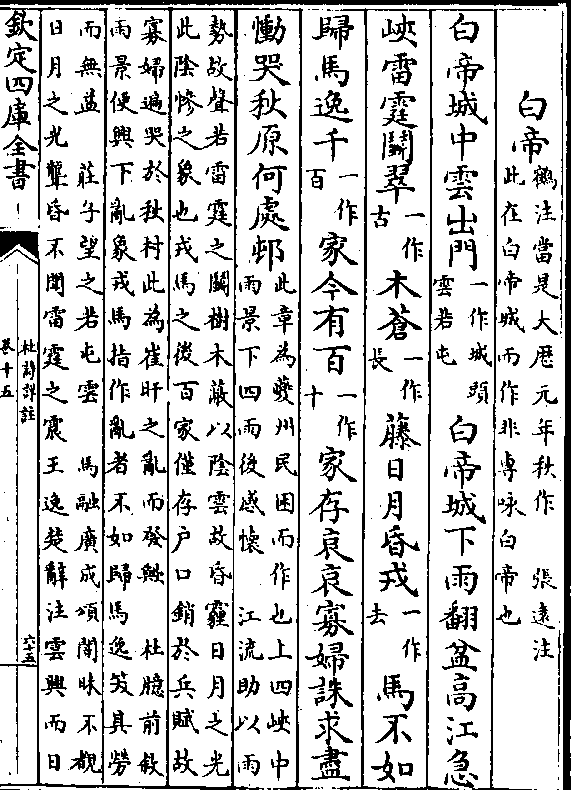 白帝鶴注當是大厯元年秋作　張遠注
此在白帝城而作非專咏白帝也
白帝城中雲出門一作城頭
雲若屯白帝城下雨翻盆高江急
峽雷霆鬭翠一作
古木蒼一作
長藤日月昏戎一作
去馬不如
歸馬逸千一作
百家今有百一作
十家存哀哀寡婦誅求盡
慟哭秋原何處邨此章為夔州民困而作也上四峽中
雨景下四雨後感懷　江流助以雨
勢故聲若雷霆之鬭樹木蔽以陰雲故昏霾日月之光
此陰慘之象也戎馬之後百家僅存户口銷於兵賦故
寡婦遍哭於秋村此為崔旰之亂而發歟　杜臆前叙
雨景便興下亂象戎馬指作亂者不如歸馬逸笑其勞
而無益　莊子望之若屯雲　馬融廣成頌闇昧不覩
日月之光聾昏不聞雷霆之震王逸楚辭注雲興而日
欽定四庫全書
杜詩詳註
卷十五
六十五